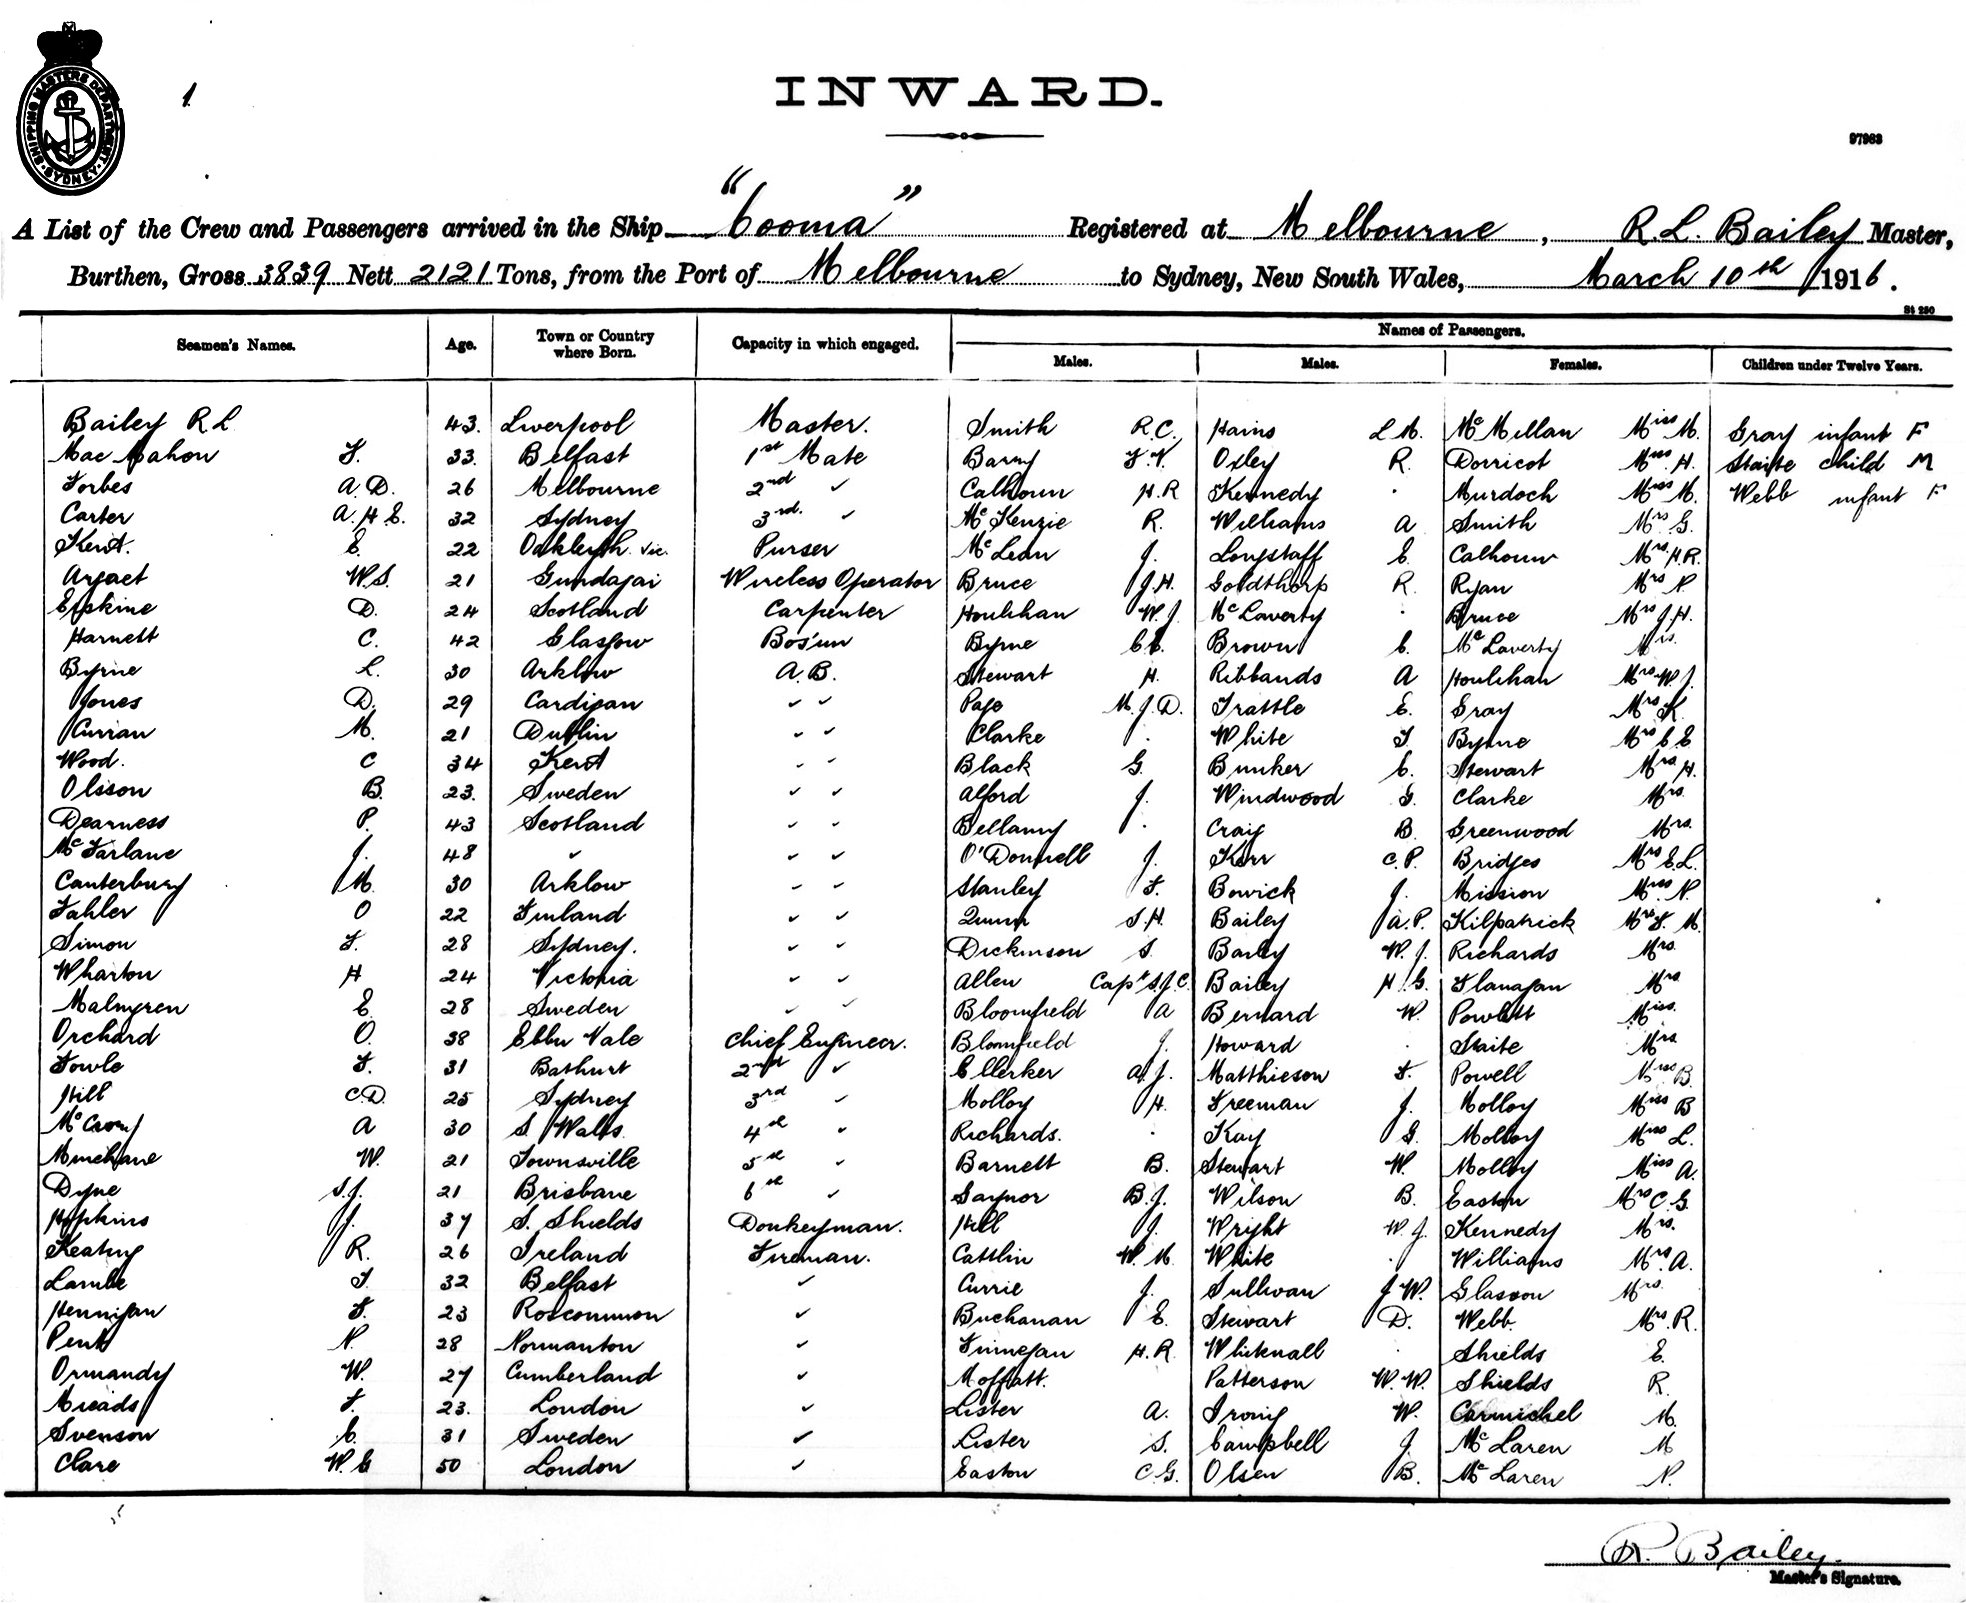 SHIPPING MASTERS DEPARTMENT. SYDNEY
1.
INWARD.
97983
A List of the Crew and Passengers arrived in the Ship "Cooma" Registered at Melbourne, R. L. Bailey Master,
Burthen, Gross 3839 Nett 2121 Tons, from the Port of Melbourne to Sydney, New South Wales, March 10th 1916.
St 230
Seamen's Names. Age. Town or Country where Born. Capacity in which engaged. Names of Passengers.
Males. Males. Females. Children under Twelve Years.
Bailey R L 43. Liverpool Master. Smith R.C. Hains L M. McMillan Miss M. Gray infant F
Mac Mahon F. 33. Belfast 1st Mate Barry F.V. Oxley R. Dorricot Miss. H. Staite child M
Forbes A. D. 26 Melbourne 2nd " Calhoun H.R Kennedy Murdoch Miss M. Webb infant F
Carter A. H. E. 32 Sydney 3rd. " McKenzie R. Williams A Smith Mrs G.
Kent. E. 22 Oakleigh. Vic. Purser McLean J. Longstaff E. Calhoun Mrs. H.R.
W.S. 21 Gundagai Wireless Operator Bruce J.H. Goldthorp R. Ryan Mrs
Erskine D. 24 Scotland Carpenter Houlihan W.J. McLaverty Bruce Mrs J.H.
Harnett C. 42 Glasgow Bos'un Byrne C.E. Brown C. McLaverty
Byrne L. 30 Arklow A. B. Stewart H. Ribbands A Houlihan Mrs W.J.
Jones D. 29 Cardigan " " Page M. J. D. Trattle E. Gray Mrs K.
Curran M. 21 Dublin " " Clarke White Byrne Mrs C E
Wood. C 34 Kent " " Black G. Bunker C. Stewart Mrs. H.
Olsson B. 23. Sweden " " Alford J. Windwood S. Clarke Mrs.
Dearness P. 43 Scotland " " Bellamy J. Craig B. Greenwood Mrs.
McFarlane J. 48 " " " O'Donnell J. Kerr C.P. Bridges Mrs E.L.
Canterbury M. 30 Arklow " " Stanley F. Bowick J. Mission Miss. N.
Fahler O 22 Finland " " Quinn S.H. Bailey A.P. Kilpatrick Mrs F. M.
Simon F. 28 Sydney. " " Dickinson S. Bailey W. J. Richards Mrs.
Wharton H 24 Victoria " " Allen Capt S.J.C. Bailey H G. Flanagan Mrs
Malmgren E. 28 Sweden " " Bloomfield A Bernard W. Powlett Miss.
Orchard O. 38 Ebbw Vale Chief Engineer. Bloomfield J. Howard Staite Mrs
Fowle F. 31 Bathurst 2nd " Ellerker A.J. Matthieson F. Powell B.
Hill C.D. 25 Sydney 3rd " Molloy H. Freeman J. Molloy Miss B
A 30 S. Wales. 4th " Richards. Kay G. Molloy L.
Minehane W. 21 Townsville 5th " Barnett B. Stewart W. Molloy Miss A.
Dyne S.J. 21 Brisbane 6th " Saynor B.J. Wilson B. Easton Mrs C.G.
Hopkins J. 37 S. Shields Donkeyman. Hill J. Wright W. J. Kennedy Mrs.
Keating R. 26 Ireland Fireman. Cattlin W. M. White Williams Mrs. A.
Lambe T. 32 Belfast " Currie J. Sullivan J W. Glasson Mrs.
Hennigan F. 23 Roscommon " Buchanan E. Stewart D. Webb. Mrs. R.
N. 28 Normanton " Finnegan H.R. Whicknall Shields E.
Ormandy W. 27 Cumberland " Moffatt. Patterson W. W. Shields R.
Mieads F. 23. London " Lister A. Irving W. Carmichel M.
Svenson C. 31 Sweden " Lister S. Campbell J. McLaren M
Clare W. G 50 London " Easton C.G. Olsen B. McLaren N.
R. Bailey.
Master's Signature.